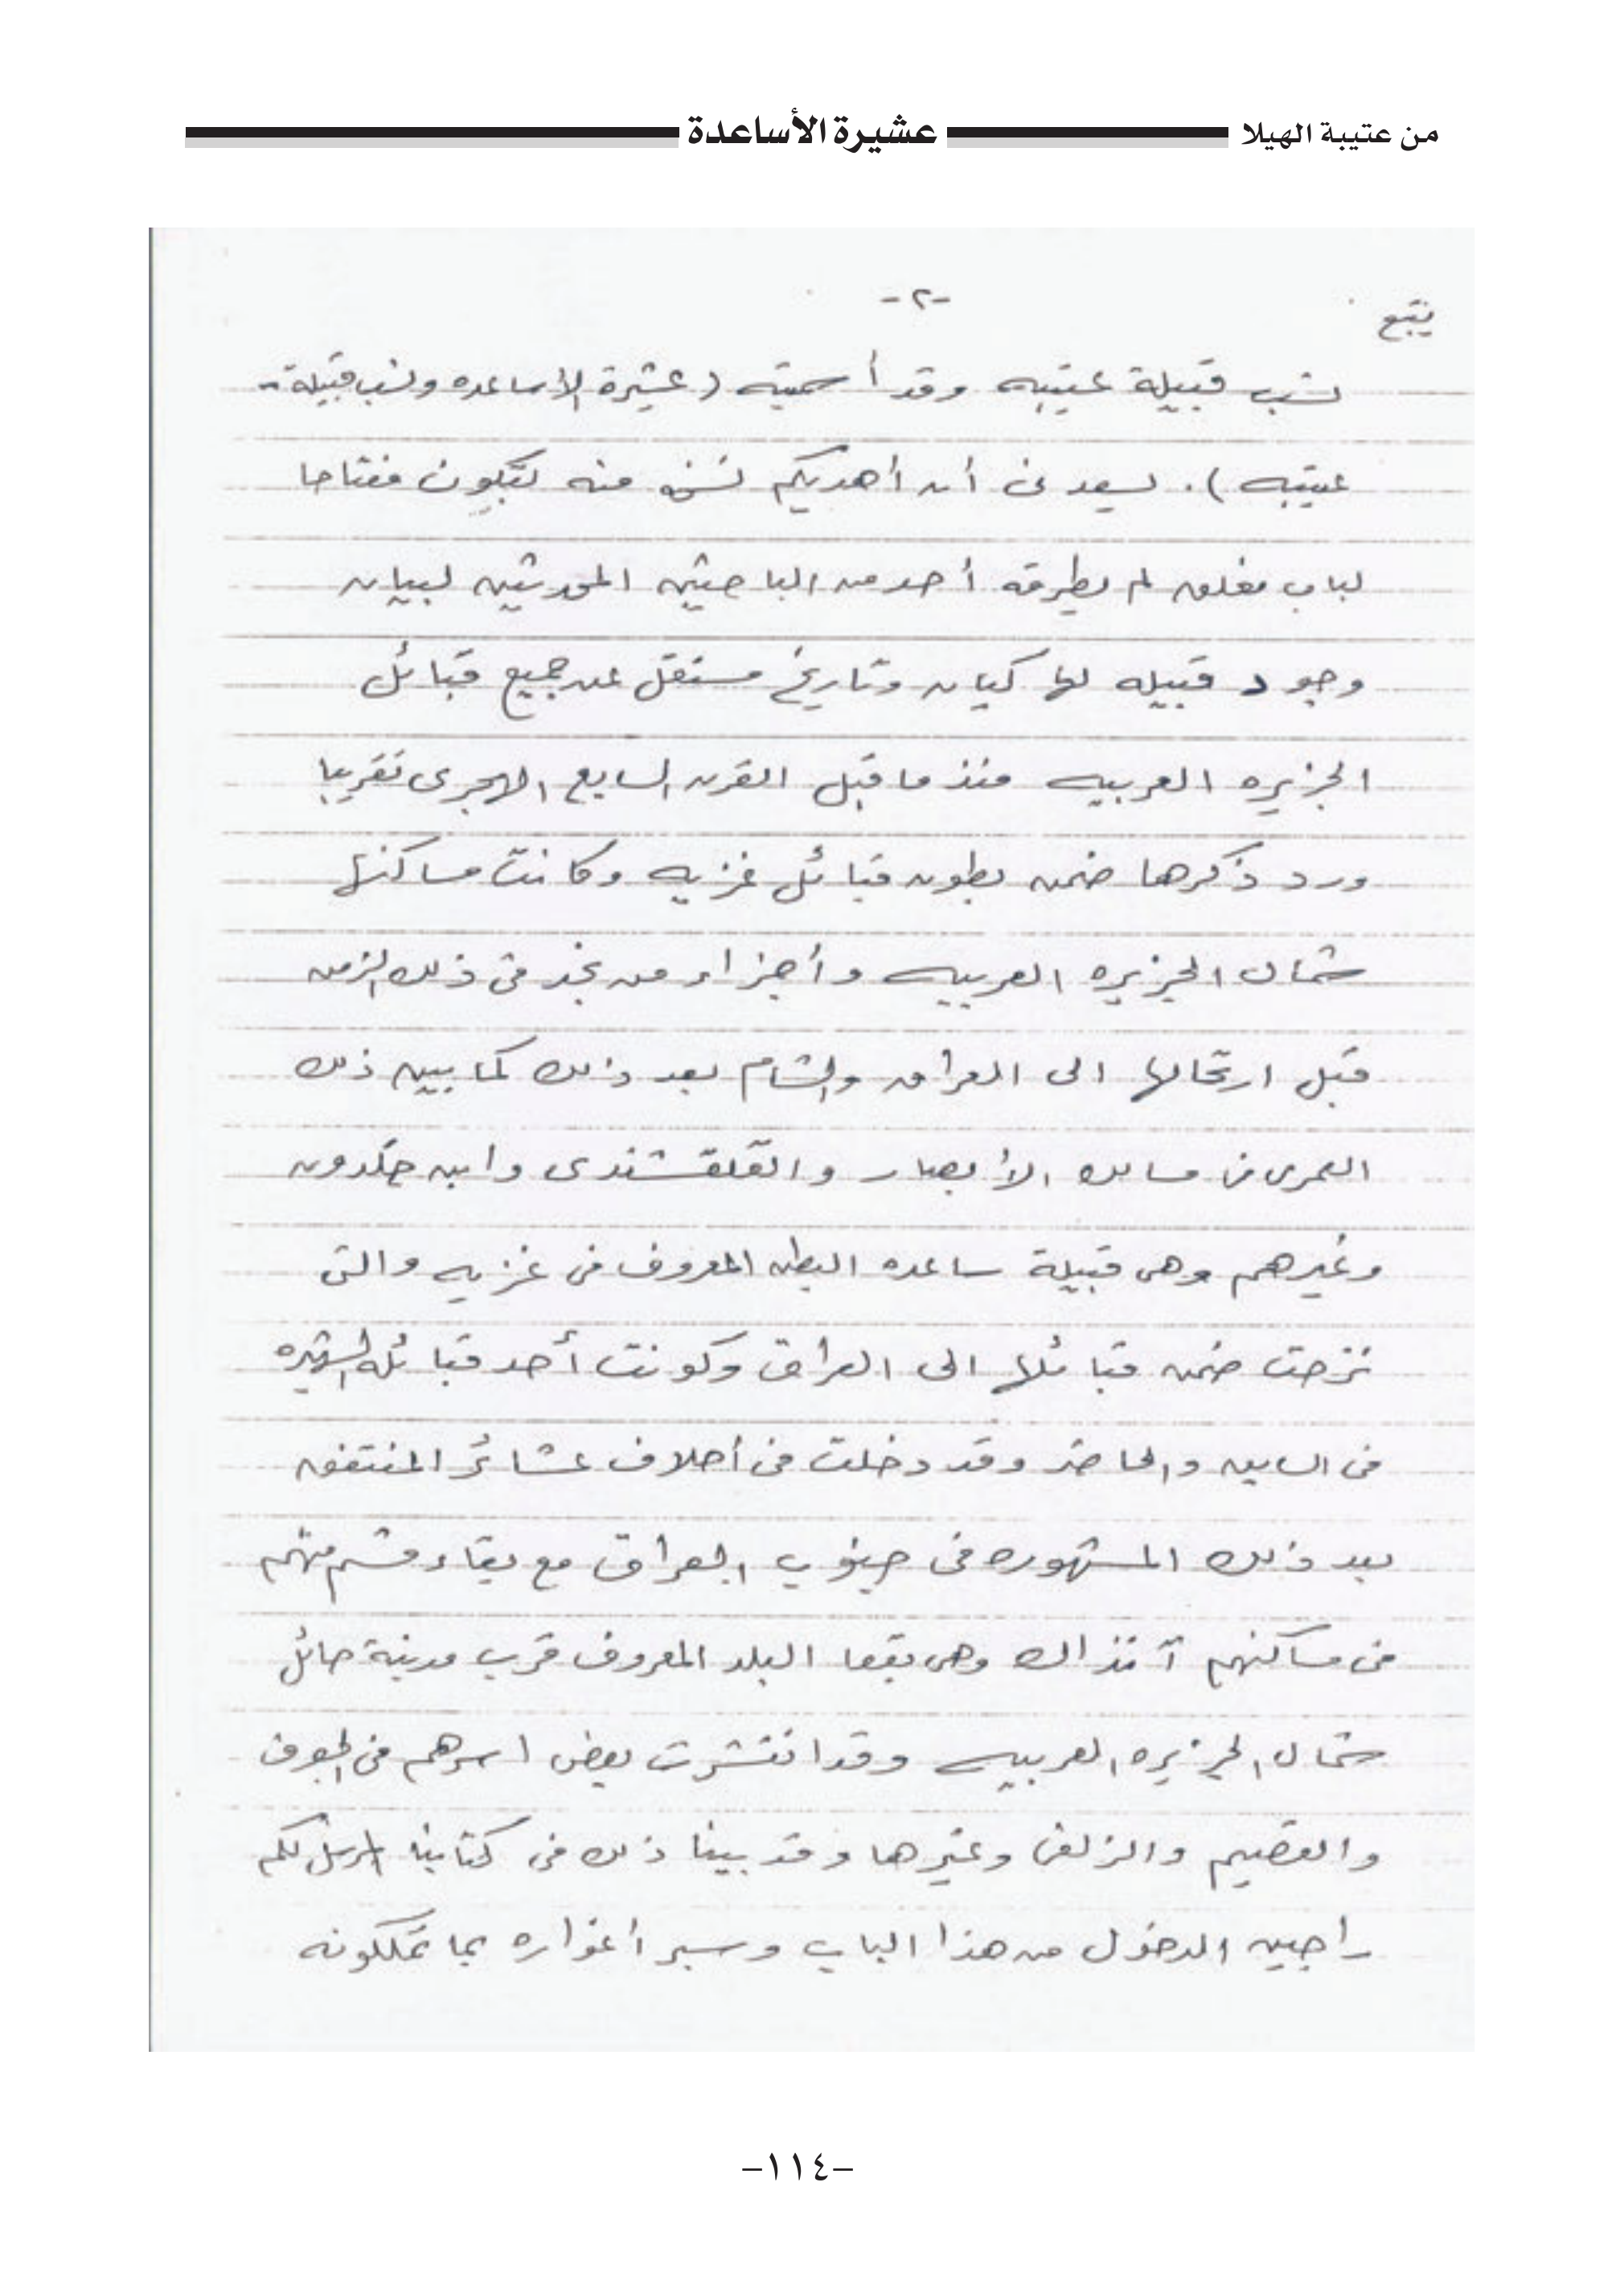 من عتيبة الهيلا عشيرة الأساعدة
-٢-
يتبع
نسب قبيلة عتيبه وقد أسميته (عشيرة الأساعده ونسب قبيلة
عتيبه). يسعدنى أن أهديكم نسخه منه لتكون مفتاحا
لباب مغلق لم يطرقه أحد من الباحثين المحدثين لبيان
وجود قبيله لها كيان وتاريخ مستقل عن جميع قبائل
الجزيره العربيه منذ ما قبل القرن السابع الهجرى تقريبا
ورد ذكرها ضمن بطون قبائل غزيه وكانت مساكنها
شمال الجزيره العربيه وأجزاء من نجد فى ذلك الزمن
قبل ارتحالها الى العراق والشام بعد ذلك كما بين ذلك
العمرى فى مسالك الأبصار والقلقشندى وابن خلدون
وغيرهم وهى قبيلة ساعده البطن المعروف فى غزيه والتى
نزحت ضمن قبائلها الى العراق وكونت أحد قبائله الشهيره
فى السابق والحاضر وقد دخلت فى أحلاف عشائر المنتفق
بعد ذلك المشهوره فى جنوب العراق مع بقاء قسم منهم
فى مساكنهم آنذاك وهى بقعا البلد المعروف قرب مدينة حائل
شمال الجزيره العربيه وقد انتشرت بعض اسرهم فى الجوف
والقصيم والزلفى وغيرها وقد بينا ذلك فى كتابنا المرسل لكم
راجين الدخول من هذا الباب وسبر أغواره بما تملكونه
-١١٤-